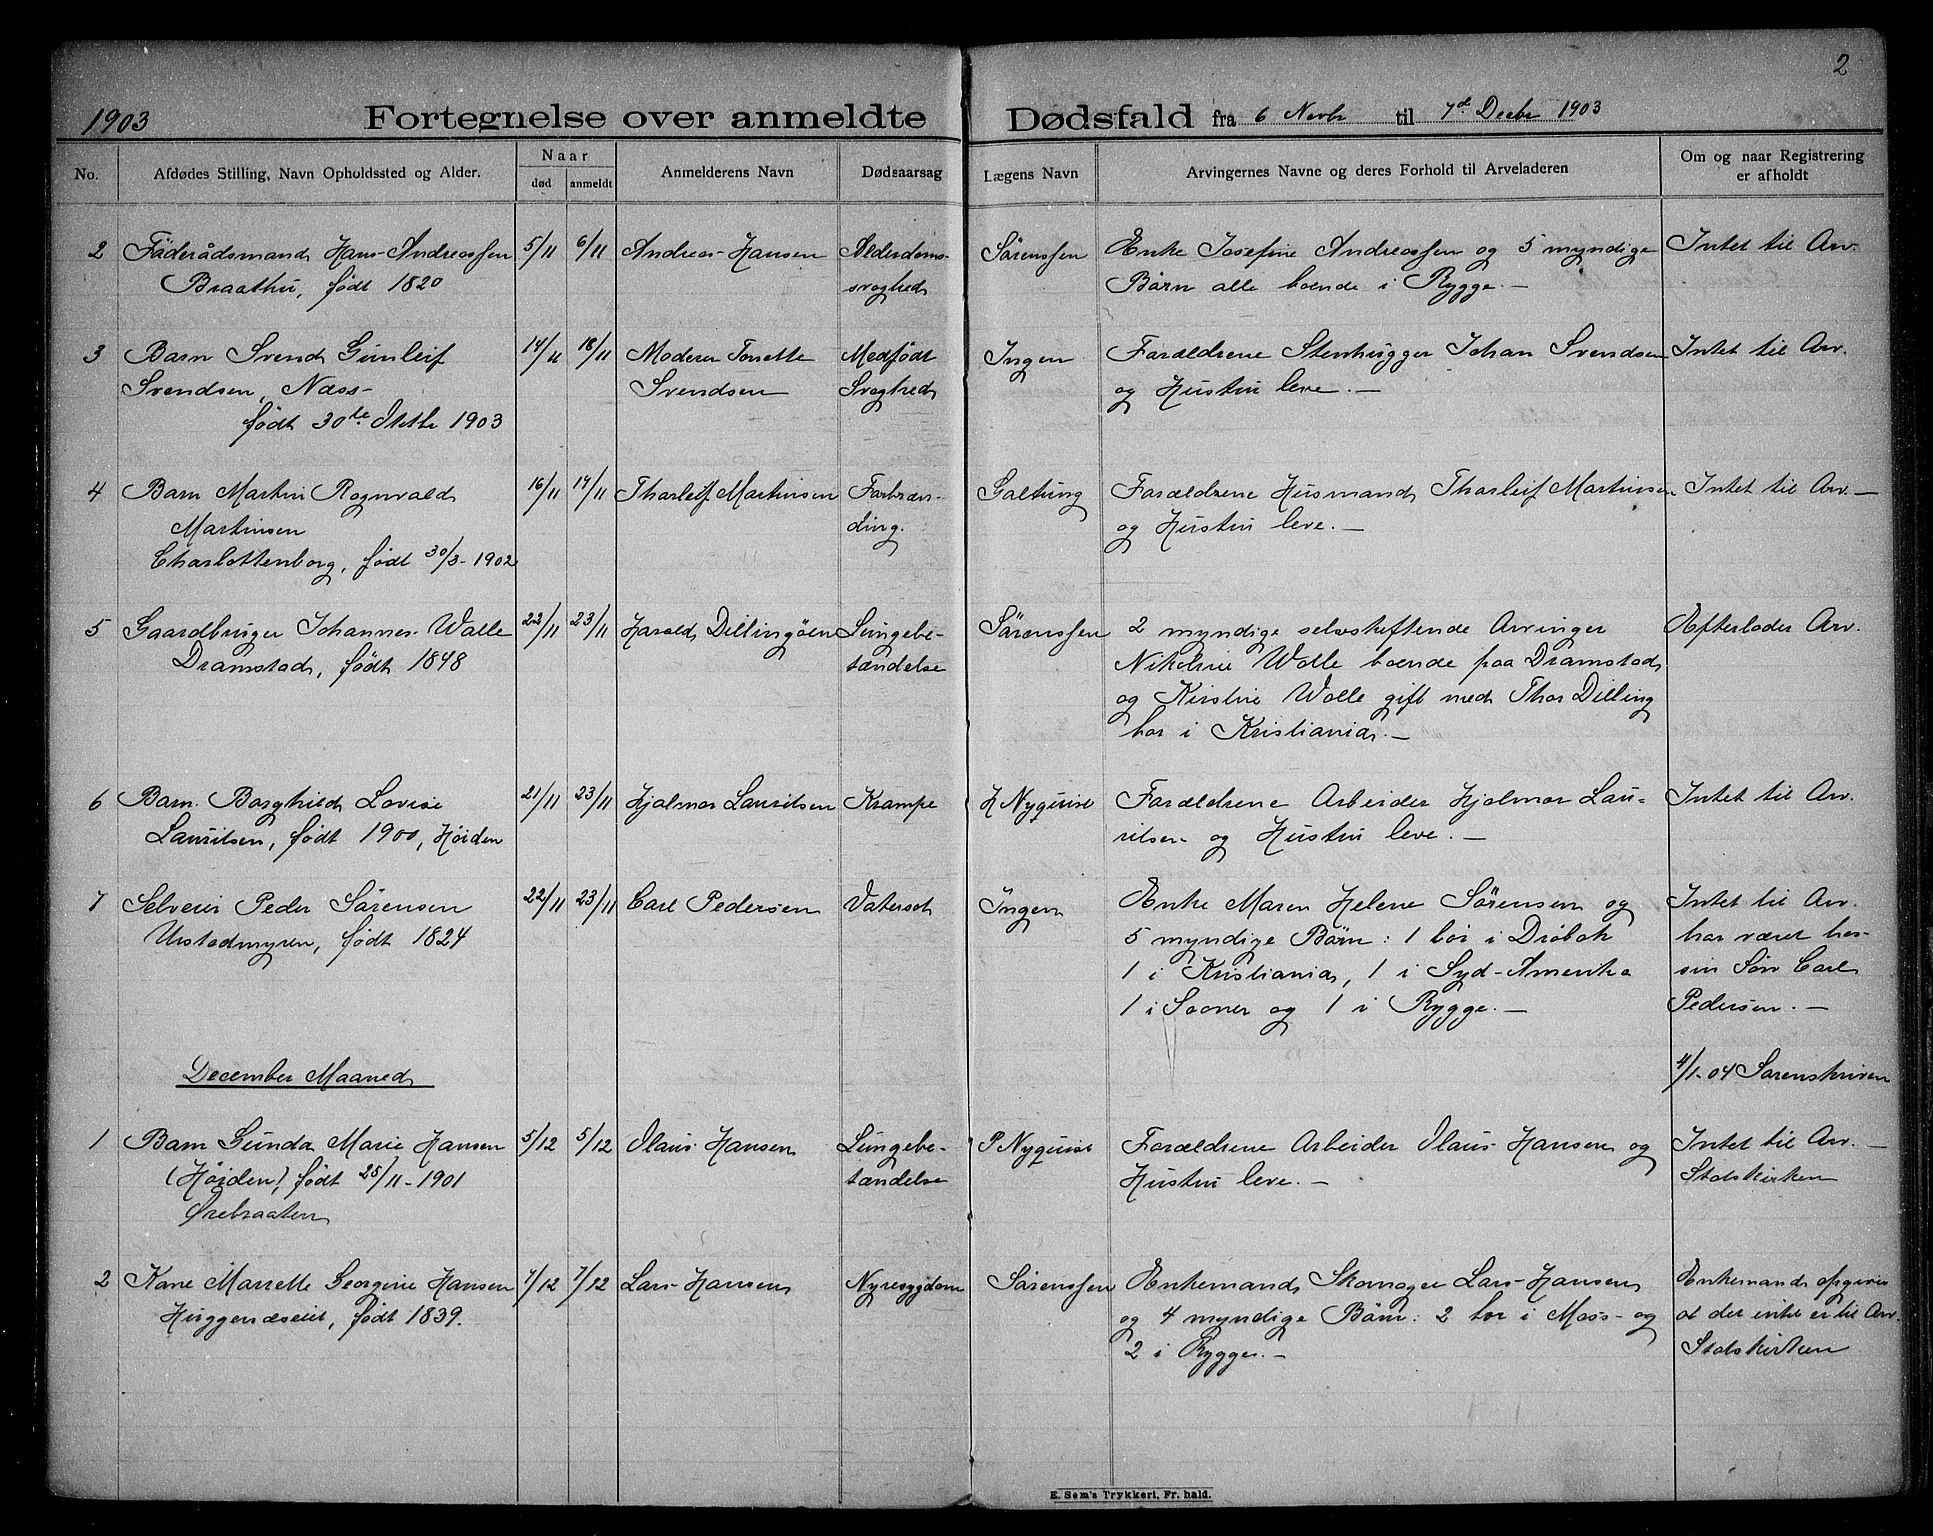 2
1903 Fortegnelse over anmeldte Dødsfald fra 6 Novbr til 7d Decbr 1903
No. Afdødes Stilling, Navn Opholdssted og Alder. Naar død anmeldt Anmelderens Navn Dødsaarsag Lægens Navn Arvingernes Navne og deres Forhold til Arveladeren Om og naar Registrering er afholdt
2 Föderådsmand Hans Andreassen 5/11 6/11 Andreas Hansen Alderdoms- Sørenssen Enke Josefine Andreassen og 5 myndige Intet til Arv-
Braathu, født 1820 svaghed Børn alle boende i Rygge.-
3 Barn Svend Gunleif 14/11 18/11 Moderen Tonette Medfødt Ingen Forældrene Stenhugger Johan Svendsen Intet til Arv.
Svendsen, Næss- Svendsen Svaghed og Hustru leve.-
født 30te Oktbr 1903
4 Barn Martin Rognvald 16/11 19/11 Tharleif Martinsen Forbræn- Galtung Forældrene Husmand Tharleif Martinsen Intet til Arv.-
Martinsen ding. og Hustru leve.-
Charlottenborg, født 30/3-1902
5 Gaardbruger Johannes Walle 22/11 23/11 Harald Dillingøen Lungebe- Sørenssen 2 myndige selvskiftende Arvinger Efterlader Arv.
Dramstad, født 1848 tændelse Nikoline Walle boende paa Dramstad
og Kirstine Walle gift med Thor Dilling
bor i Kristiania.-
6 Barn Borghild Lovise 21/11 23/11 Hjalmar Lauritsen Krampe H Nyquist Forældrene Arbeider Hjalmar Lau- Intet til Arv.
Lauritsen, født 1900, Høiden ritsen og Hustru leve.-
7 Selveier Peder Sørensen 22/11 23/11 Carl Pedersen Vatersot Ingen Enke Maren Helene Sørensen og Intet til Arv.
Urstadmyren, født 1824 5 myndige Børn: 1 bor i Drøbak har været hos
1 i Kristiania, 1 i Syd-Amerika sin Søn Carl
1 i Sooner og 1 i Rygge.- Pedersen.-
December Maaned 4/1-04 Sorenskriven
1 Barn Gunda Marie Hansen 5/12 5/12 Olaus Hansen Lungebe- P Nyquist Forældrene Arbeider Olaus Hansen og Intet til Arv.-
(Høiden), født 25/11-1901 tændelse Hustru leve.- Stadskirken
Ørebraaten
2 Kone Marrette Georgine Hansen 7/12 7/12 Lars Hansen Nyresygdom Sørenssen Enkemand Skomager Lars Hansen Enkemand opgiver
Huggenæseiet, født 1839. og 4 myndige Børn: 2 bor i Moss- og at der intet er til Arv.
2 i Rygge.- Stadskirken
E. Sem's Trykkeri, Fr.hald.